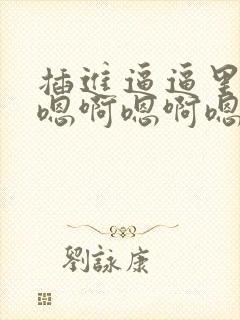 插進逼逼里
嗯啊嗯啊嗯
劉詠康